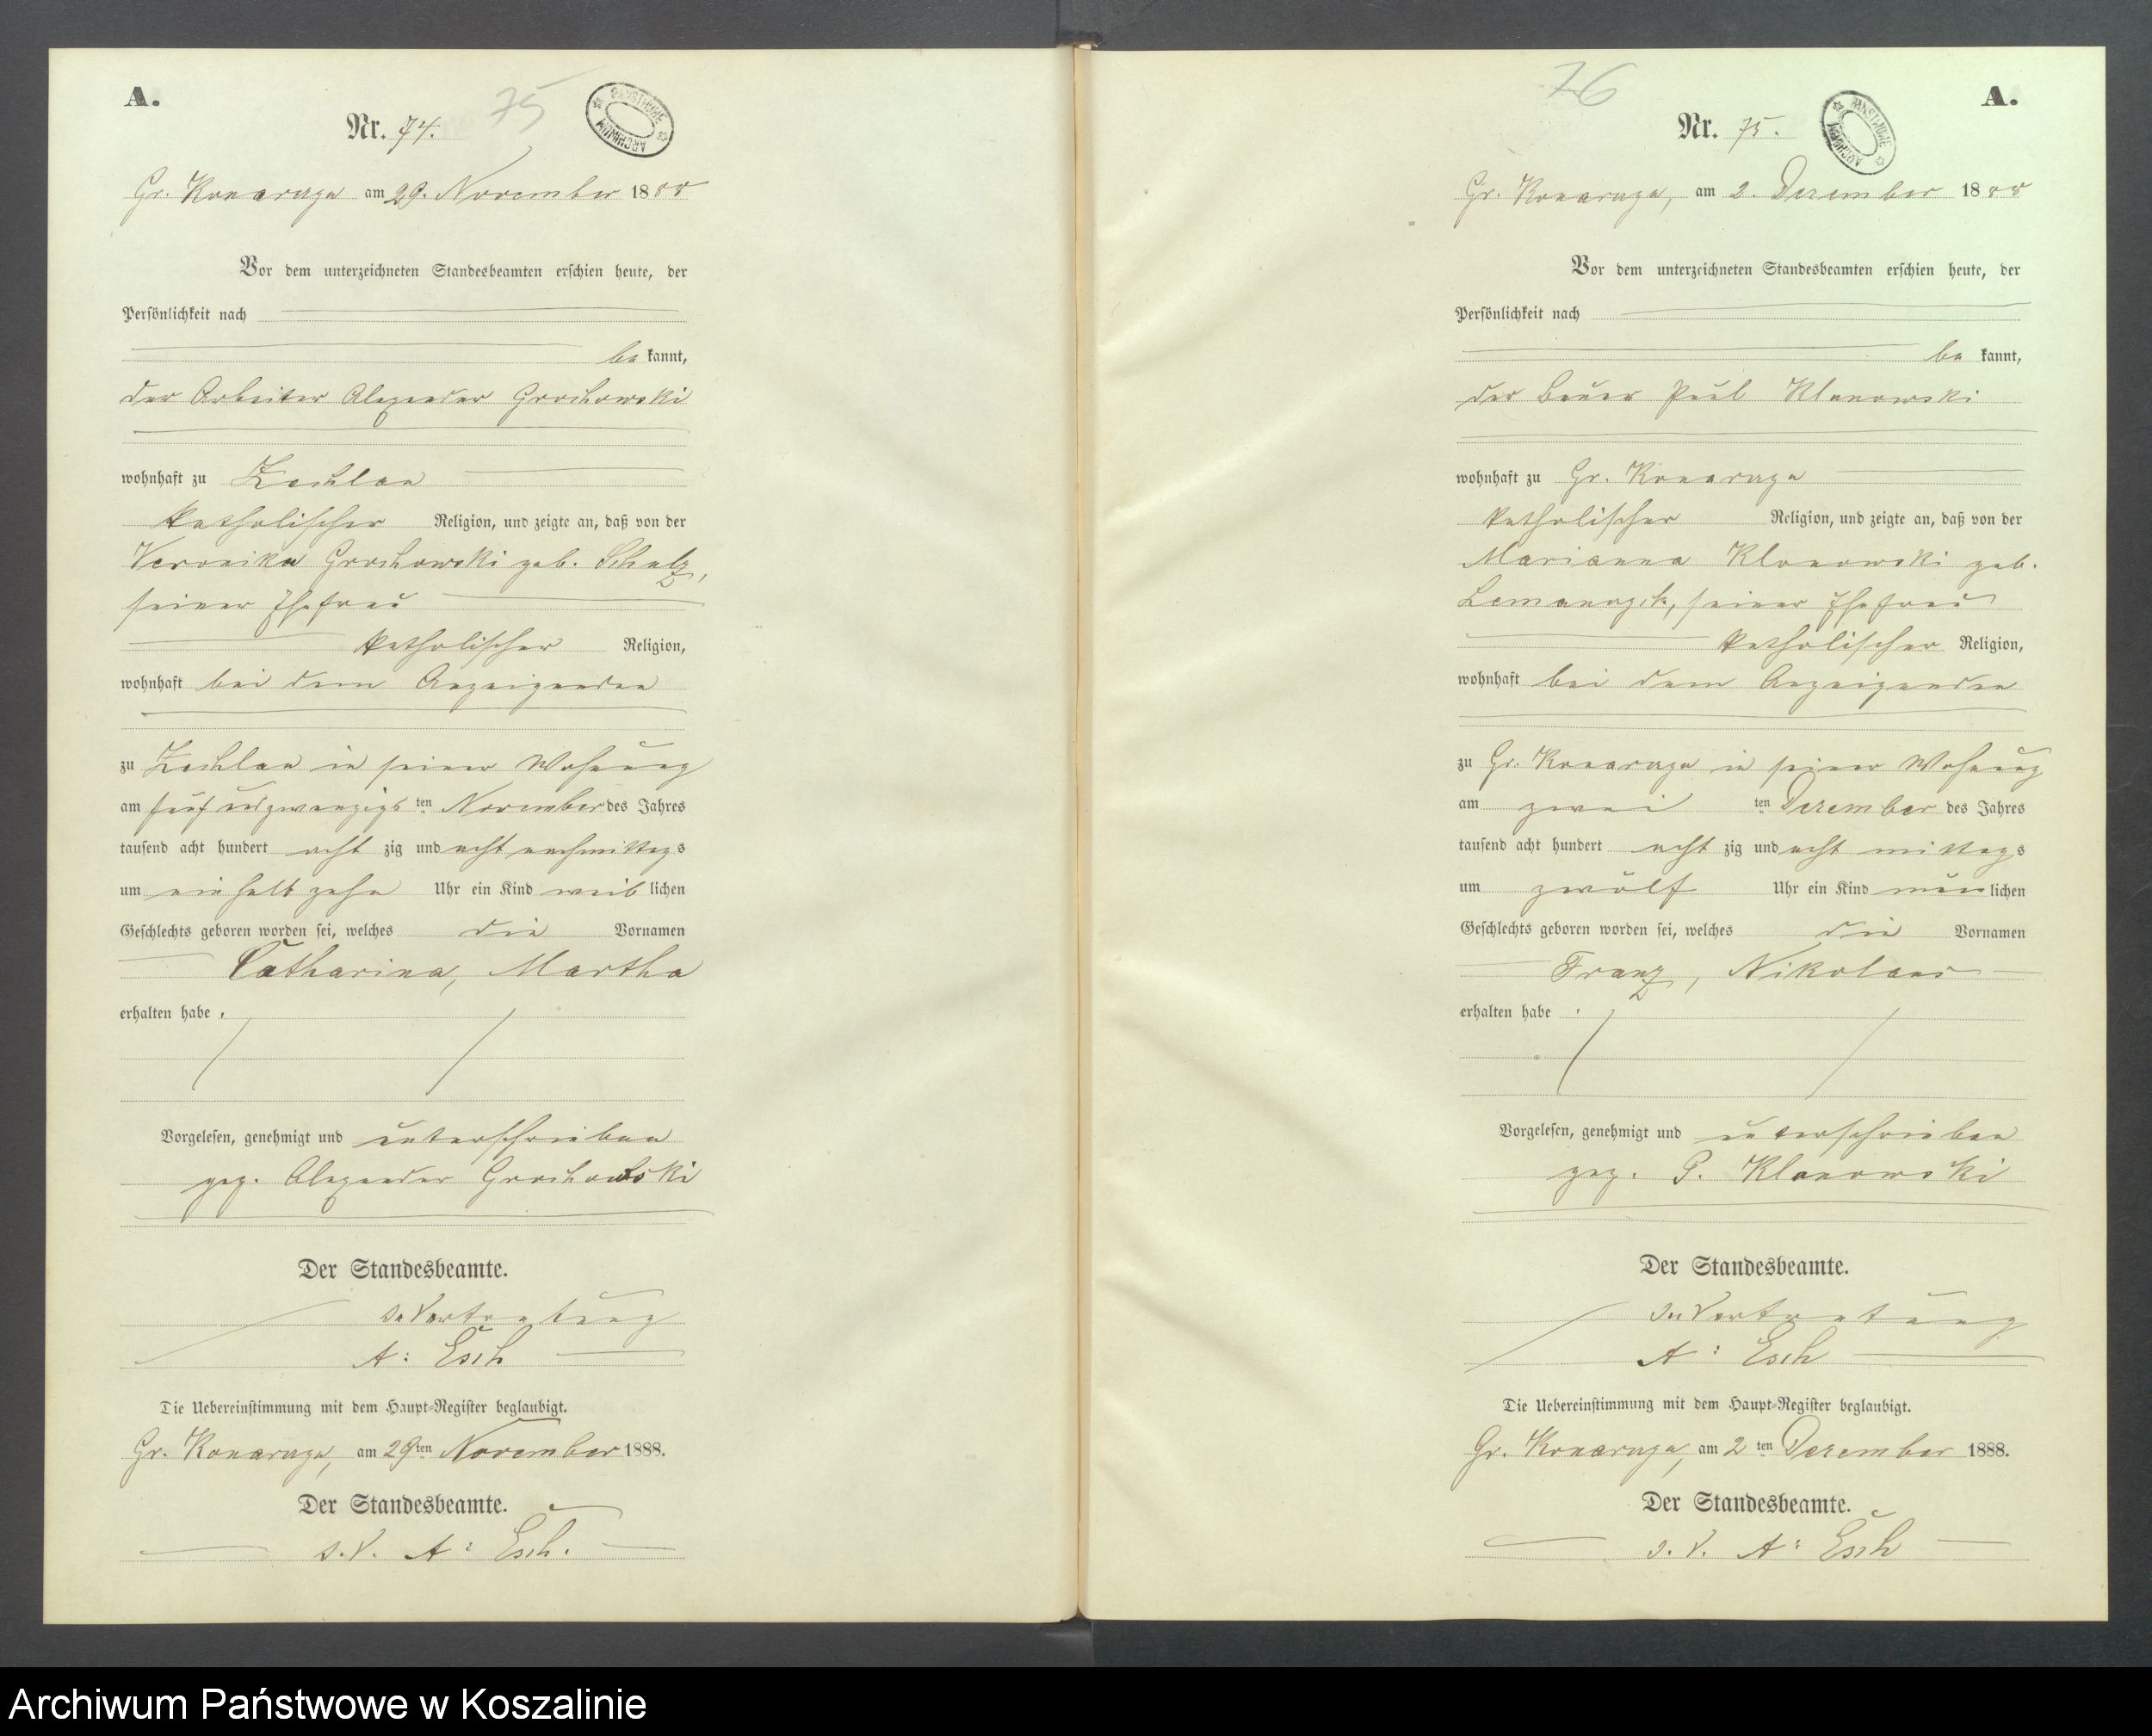 A.
75
Nr. 74.
ARCHIWUM PAŃSTWOWE
Gr. Konarczyn am 29. November 1888
Vor dem unterzeichneten Standesbeamten erschien heute, der
Persönlichkeit nach
be kannt,
der Arbeiter Alexander Grochowski
wohnhaft zu Zechlau
katholischer Religion, und zeigte an, daß von der
Veronika Grochowski geb. Schulz,
seiner Ehefrau
katholischer Religion,
wohnhaft bei dem Anzeigenden
zu Zechlau in seiner Wohnung
am fünf und zwanzigs ten November des Jahres
tausend acht hundert acht zig und acht nachmittags
um ein halb zehn Uhr ein Kind weib lichen
Geschlechts geboren worden sei, welches die Vornamen
Catharina, Martha
erhalten habe.
Vorgelesen, genehmigt und unterschrieben
gez. Alexander Grochowski
Der Standesbeamte.
In Vertretung
A: Esch
Die Uebereinstimmung mit dem Haupt-Register beglaubigt.
Gr. Konarczyn, am 29 ten November 1888.
Der Standesbeamte.
I. V. A: Esch.
76
A.
Nr. 75.
ARCHIWUM PAŃSTWOWE
Gr. Konarczyn, am 2. Dezember 1888
Vor dem unterzeichneten Standesbeamten erschien heute, der
Persönlichkeit nach
be kannt,
der Bauer Paul Klonowski
wohnhaft zu Gr. Konarczyn
katholischer Religion, und zeigte an, daß von der
Marianna Klonowski geb.
seiner Ehefrau
katholischer Religion,
wohnhaft bei dem Anzeigenden
zu Gr. Konarczyn in seiner Wohnung
am zwei ten Dezember des Jahres
tausend acht hundert acht zig und acht mittags
um zwölf Uhr ein Kind männ lichen
Geschlechts geboren worden sei, welches die Vornamen
Franz, Nikolaus
erhalten habe.
Vorgelesen, genehmigt und unterschrieben
gez. P. Klonowski
Der Standesbeamte.
In Vertretung
A: Esch
Die Uebereinstimmung mit dem Haupt-Register beglaubigt.
Gr. Konarczyn, am 2 ten Dezember 1888.
Der Standesbeamte.
I. V. A: Esch
Archiwum Państwowe w Koszalinie